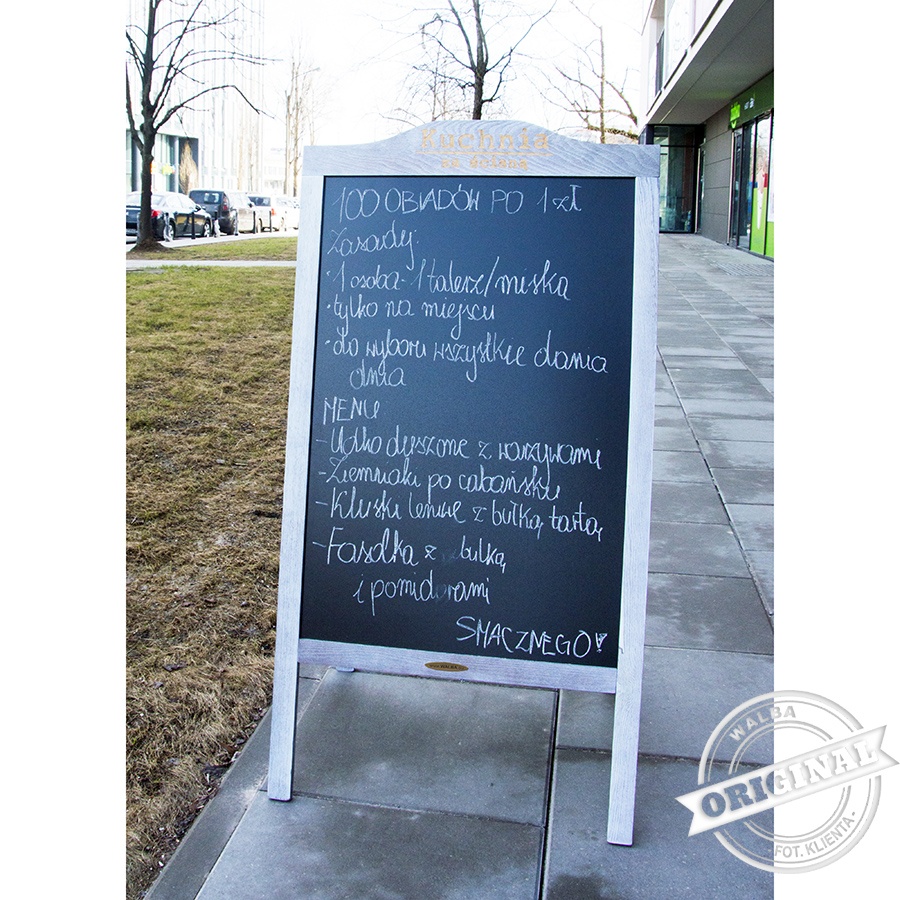 Kuchnia
za ścianą
100 OBIADÓW PO 1 zł
Zasady:
· 1 osoba - 1 talerz/miska
· tylko na miejscu
· do wyboru wszystkie dania
dnia
MENU
- Udko duszone z warzywami
- Ziemniaki po cabańsku
- Kluski leniwe z bułką tartą
- Fasolka z bułką
i pomidorami
SMACZNEGO!
WALBA
ORIGINAL
· FOT. KLIENTA ·